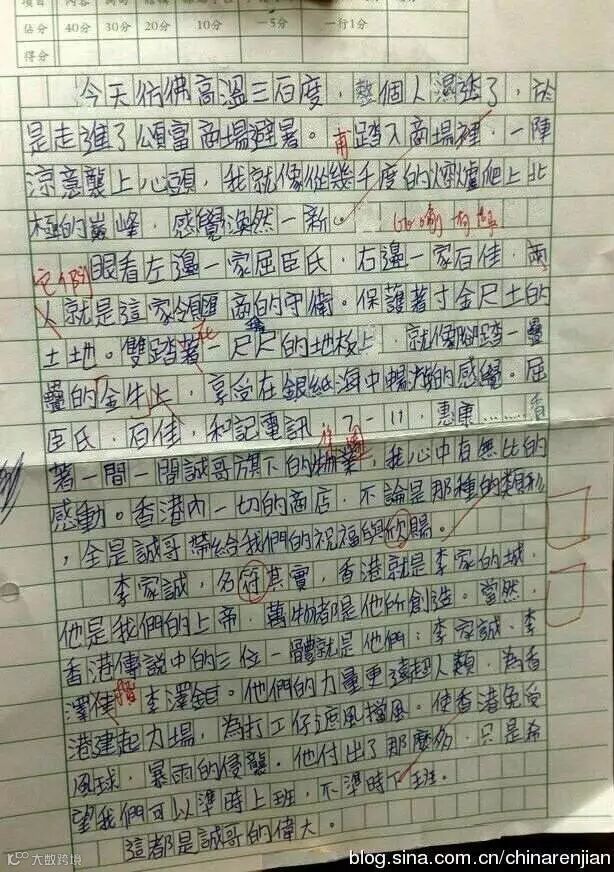 項目
佔分 40分 30分 20分 10分 －5分 一行1分
得分
今天彷佛高溫三百度，整個人濕透了，於
是走進了頌富商場避暑。甫踏入商場裡，一陣
涼意襲上心頭，我就像從幾千度的火爐爬上北
極的巔峰，感覺渙然一新。
它們
眼看左邊一家屈臣氏，右邊一家百佳，兩
人就是這家領匯商的守衛。保護著寸金尺土的
土地。雙踏著一尺尺的地板上，就像腳踏一疊
疊的金牛上，享受在銀紙海中暢遊的感覺。屈
臣氏，百佳，和記電訊，7－11，惠康……看
著一間一間誠哥旗下的物業，我心中有無比的
感動。香港內一切的商店，不論是那種的類形
，全是誠哥帶給我們的祝福與欣賜。
李家誠，名符其實，香港就是李家的城，
他是我們的上帝，萬物都是他所創造。當然，
香港傳說中的三位一體就是他們：李家誠、李
澤楷、李澤鉅。他們的力量更遠超人類，為香
港建起力場，為打工仔遮風擋風。使香港免受
風球，暴雨的侵襲。他付出了那麼多，只是希
望我們可以準時上班，不準時下班。
這都是誠哥的偉大。
大数跨境
blog.sina.com.cn/chinarenjian